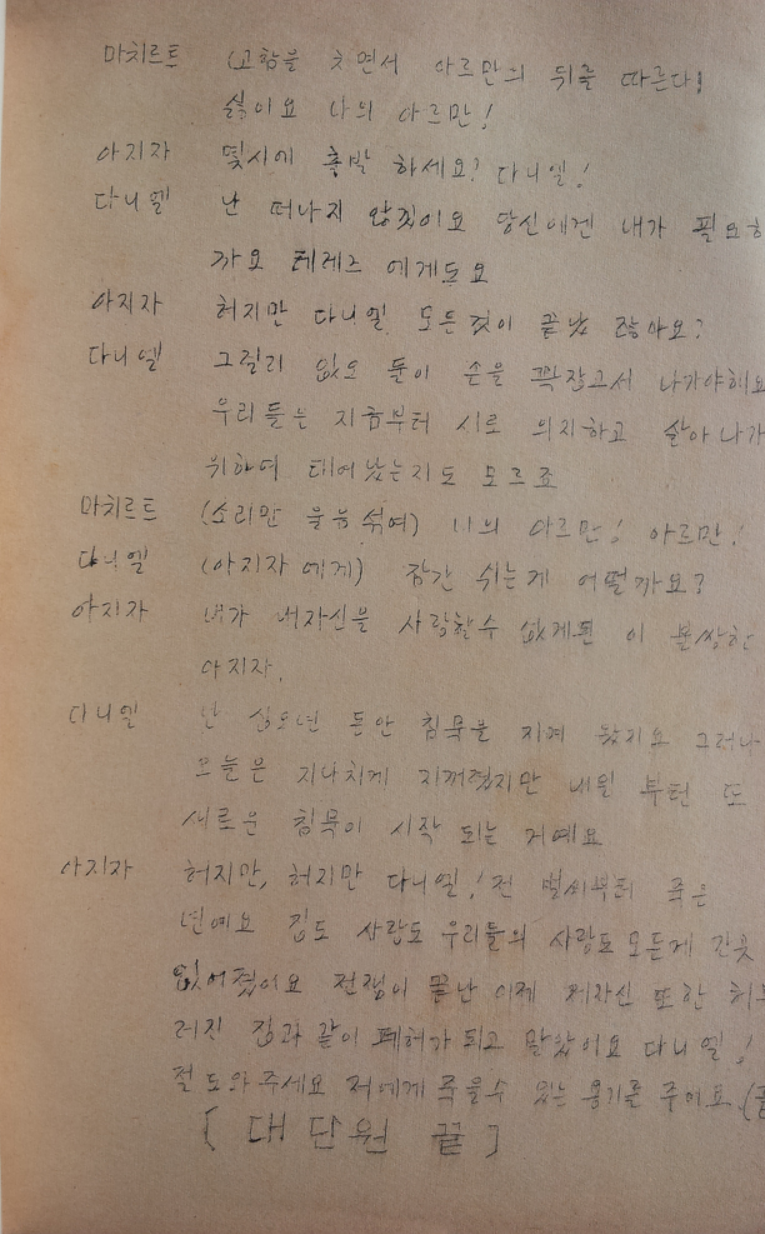 마치르트 (고함을 치면서 아르만의 뒤를 따른다)
싫어요 나의 아르만!
아지자 몇시에 출발 하세요? 다니엘!
다니엘 난 떠나지 않겠어요 당신에겐 내가 필요하
까요 테레즈 에게도요
아지자 허지만 다니엘. 모든것이 끝났 잖아요?
다니엘 그럴리 없오 둘이 손을 꽉잡고서 나가야해요
우리들은 지금부터 서로 의지하고 살아 나가
위하여 태어났는지도 모르죠
마치르트 (소리만 울음 섞여) 나의 아르만! 아르만!
다니엘 (아지자 에게) 잠간 쉬는게 어떨까요?
아지자 내가 내자신을 사랑할수 없게된 이 불쌍한
아지자.
다니엘 난 십오년 동안 침묵을 지켜 왔지요 그러나
오늘은 지나치게 지꺼렸지만 내일 부턴 또
새로운 침묵이 시작 되는 거예요
아지자 허지만, 허지만 다니엘! 전 벌써부터 죽은
년예요 집도 사랑도 우리들의 사랑도 모든게 간곳
없어졌어요 전쟁이 끝난 이제 저자신 또한 허무
러진 집과 같이 폐허가 되고 말았어요 다니엘!
절 도와주세요 저에게 죽을수 있는 용기를 주어요.
[ 대단원 끝 ]